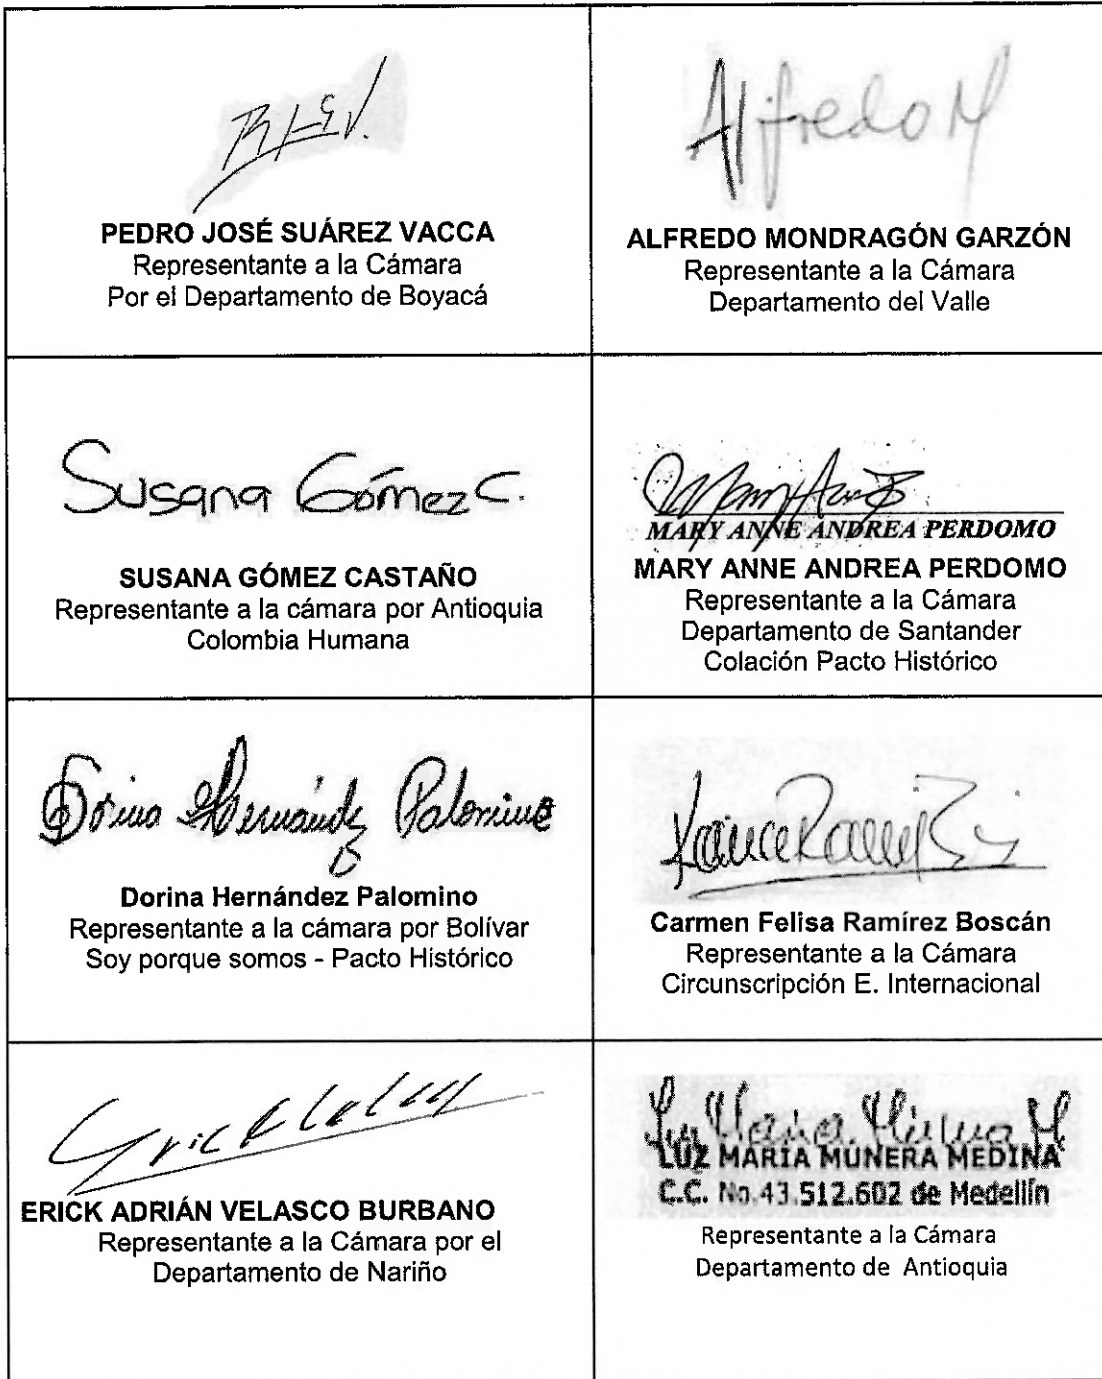 PEDRO JOSÉ SUÁREZ VACCA
Representante a la Cámara
Por el Departamento de Boyacá
Alfredo M
ALFREDO MONDRAGÓN GARZÓN
Representante a la Cámara
Departamento del Valle
Susana Gómez C.
SUSANA GÓMEZ CASTAÑO
Representante a la cámara por Antioquia
Colombia Humana
MARY ANNE ANDREA PERDOMO
MARY ANNE ANDREA PERDOMO
Representante a la Cámara
Departamento de Santander
Colación Pacto Histórico
Dorina Hernández Palomino
Dorina Hernández Palomino
Representante a la cámara por Bolívar
Soy porque somos - Pacto Histórico
Carmen Felisa Ramírez Boscán
Representante a la Cámara
Circunscripción E. Internacional
ERICK ADRIÁN VELASCO BURBANO
Representante a la Cámara por el
Departamento de Nariño
Luz Maria Múnera M
LUZ MARÍA MUNERA MEDINA
C.C. No.43.512.602 de Medellín
Representante a la Cámara
Departamento de Antioquia